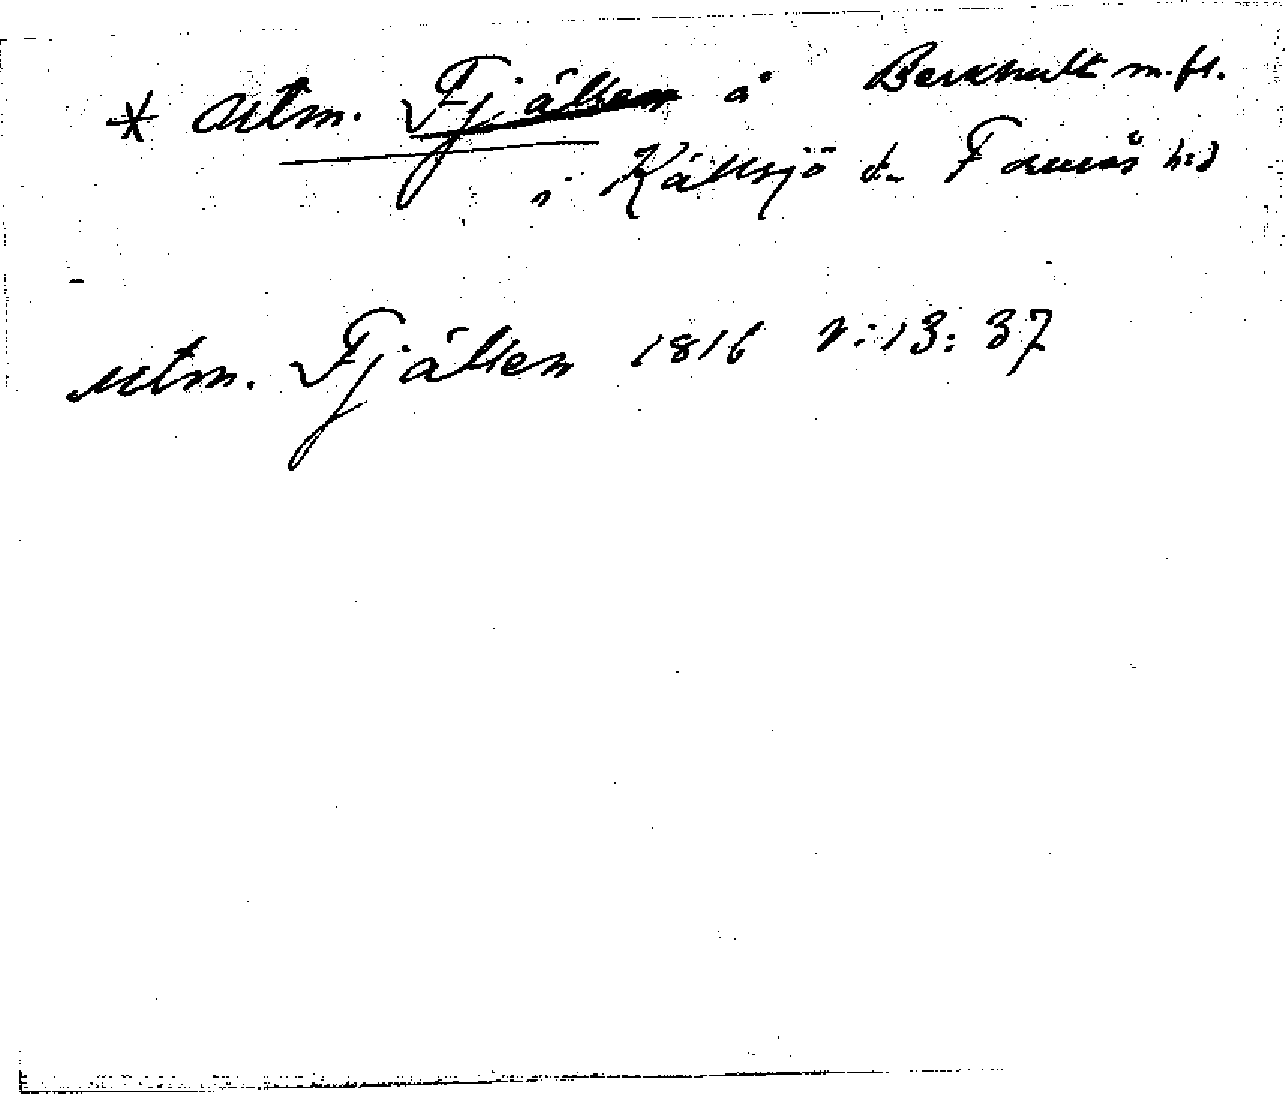 * Utm. Fjällen å Berkhult m.fl.
i Källsjö sn Faurås hd
Utm. Fjällen 1816 1:13:37